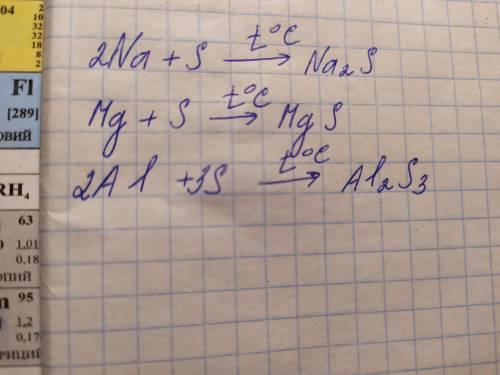 04
2
10
32
32
18
8
2
Fl
[289]
ОВИЙ
RH₄
63
1,01
0,18
ОПИЙ
m 95
1,2
0,17
РИЦИЙ
2Na + S →t°C Na₂S
Mg + S →t°C MgS
2Al +3S →t°C Al₂S₃